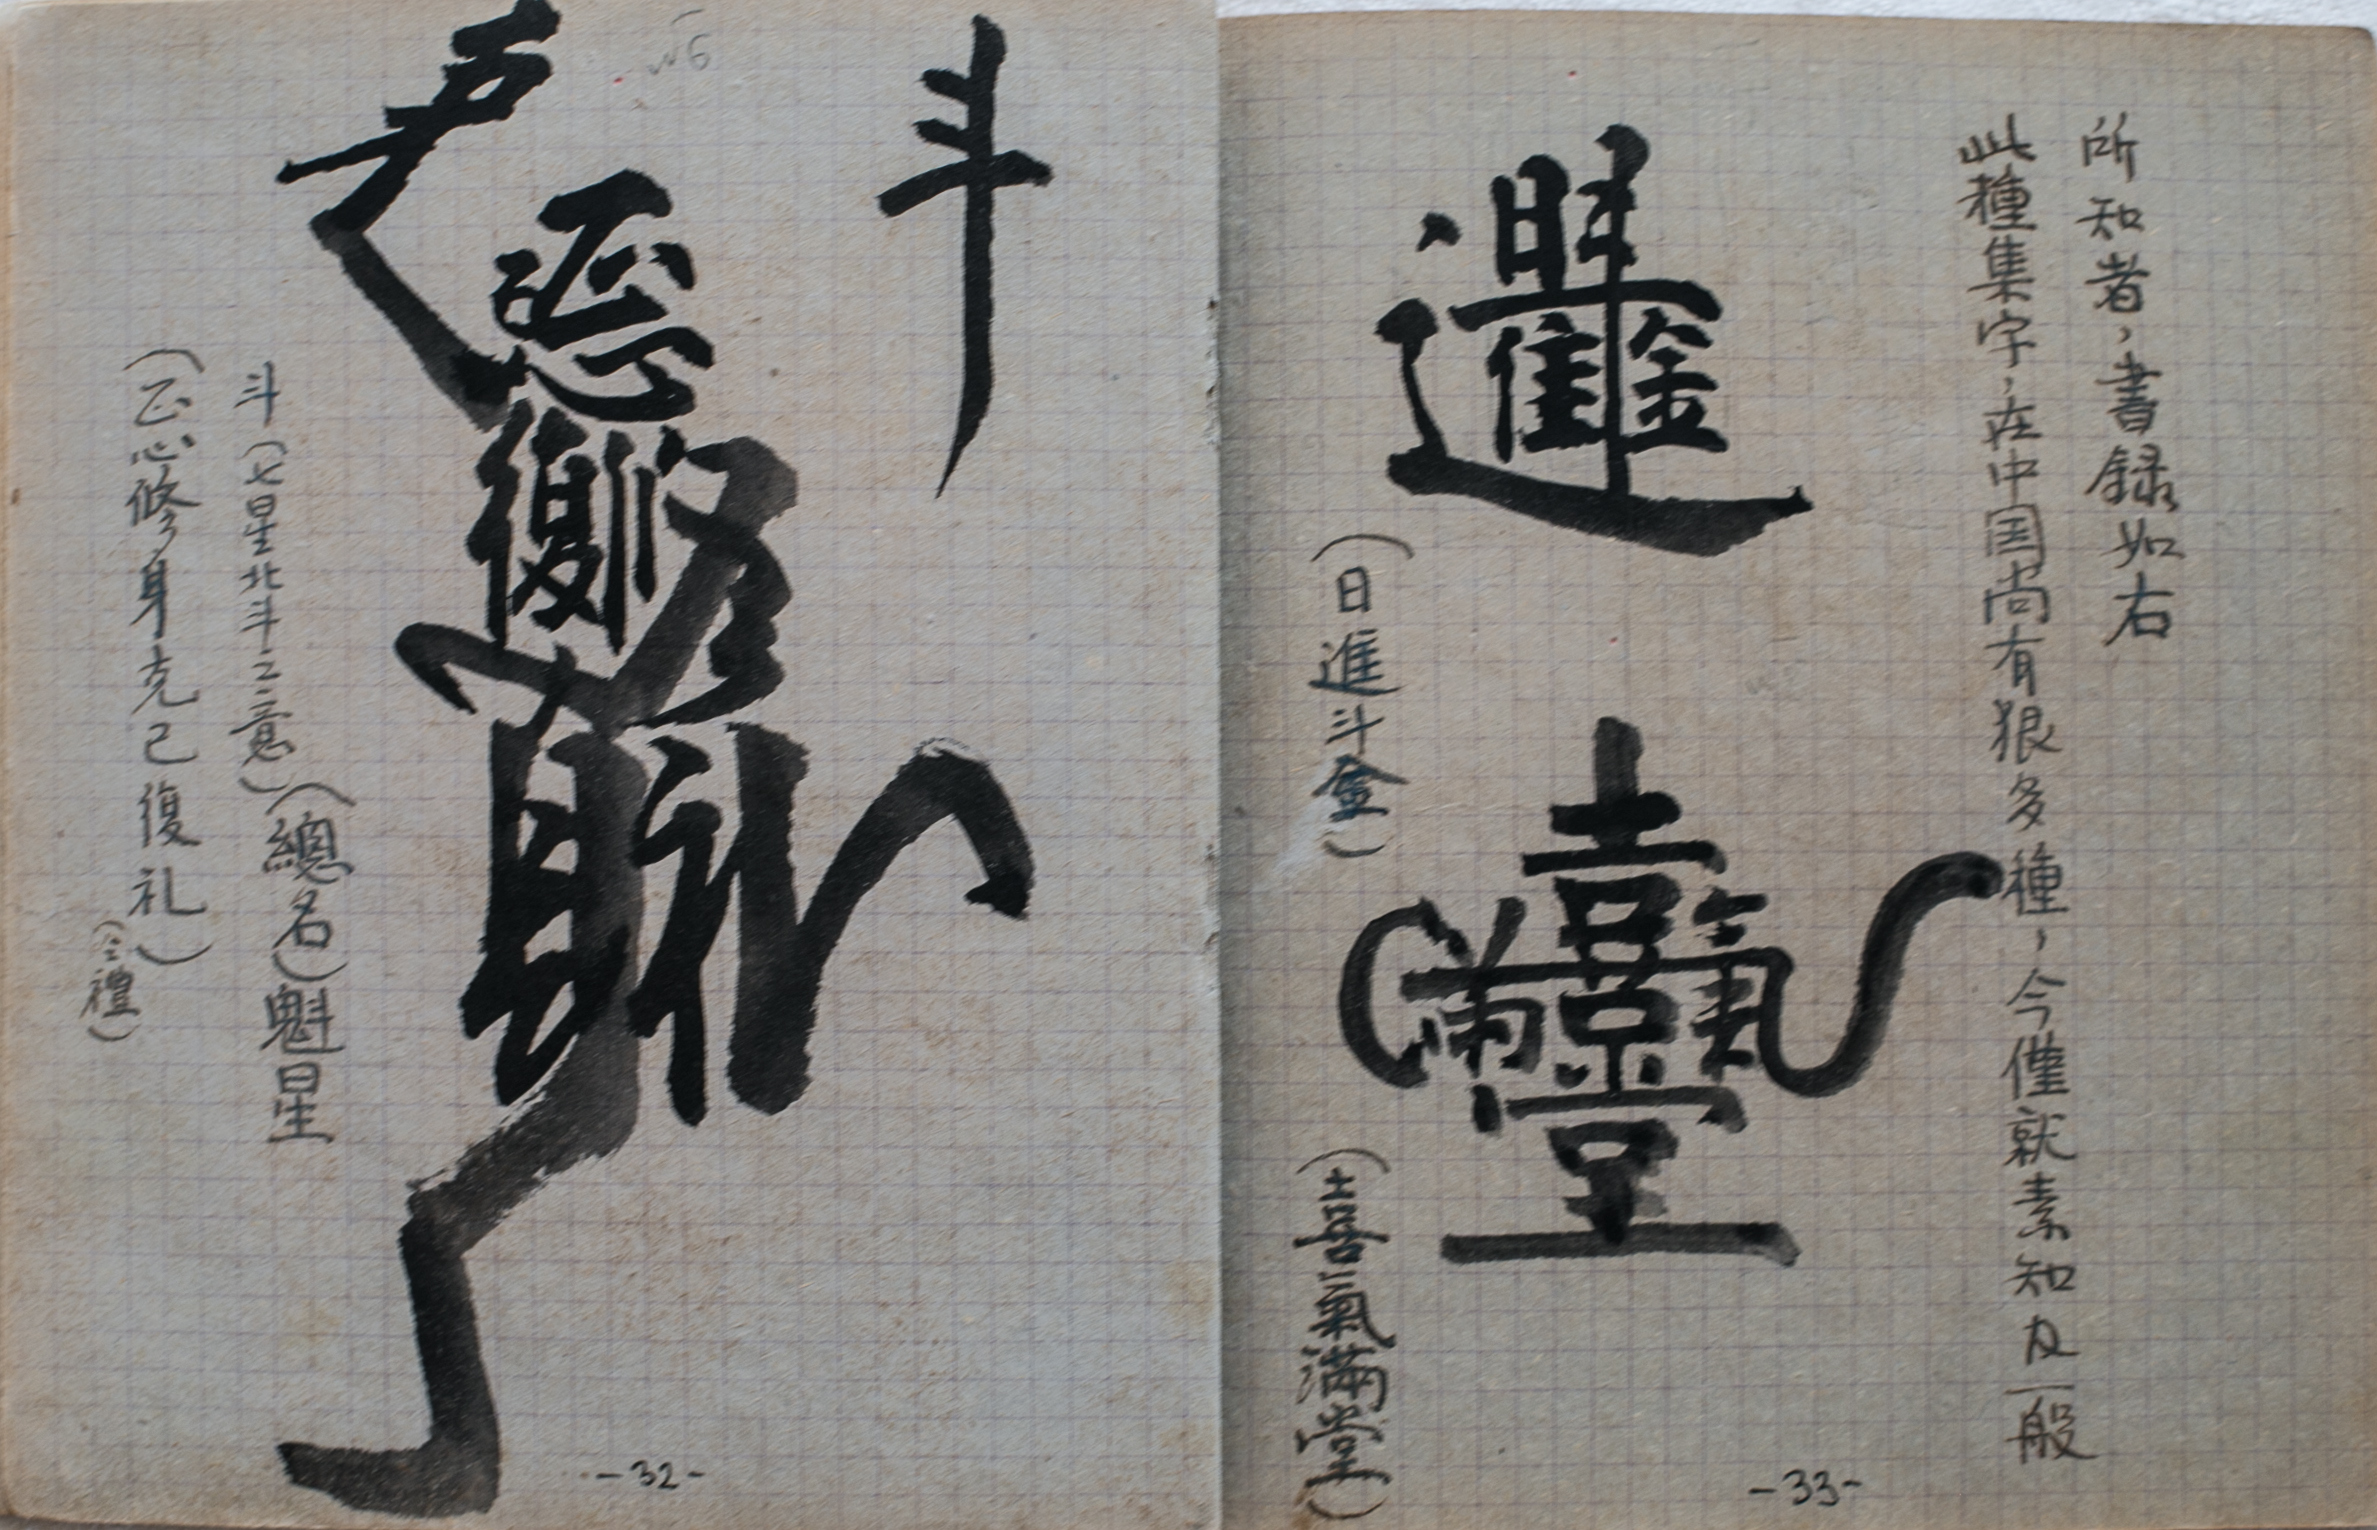 (正心修身克己復礼)
(=禮)
斗(七星北斗之意)
(總名)魁星
斗
-32-
(日進斗金)
(喜氣滿堂)
此種集字,在中国尚有狠多種,今僅就素知及一般
所知者,書録如右
-33-